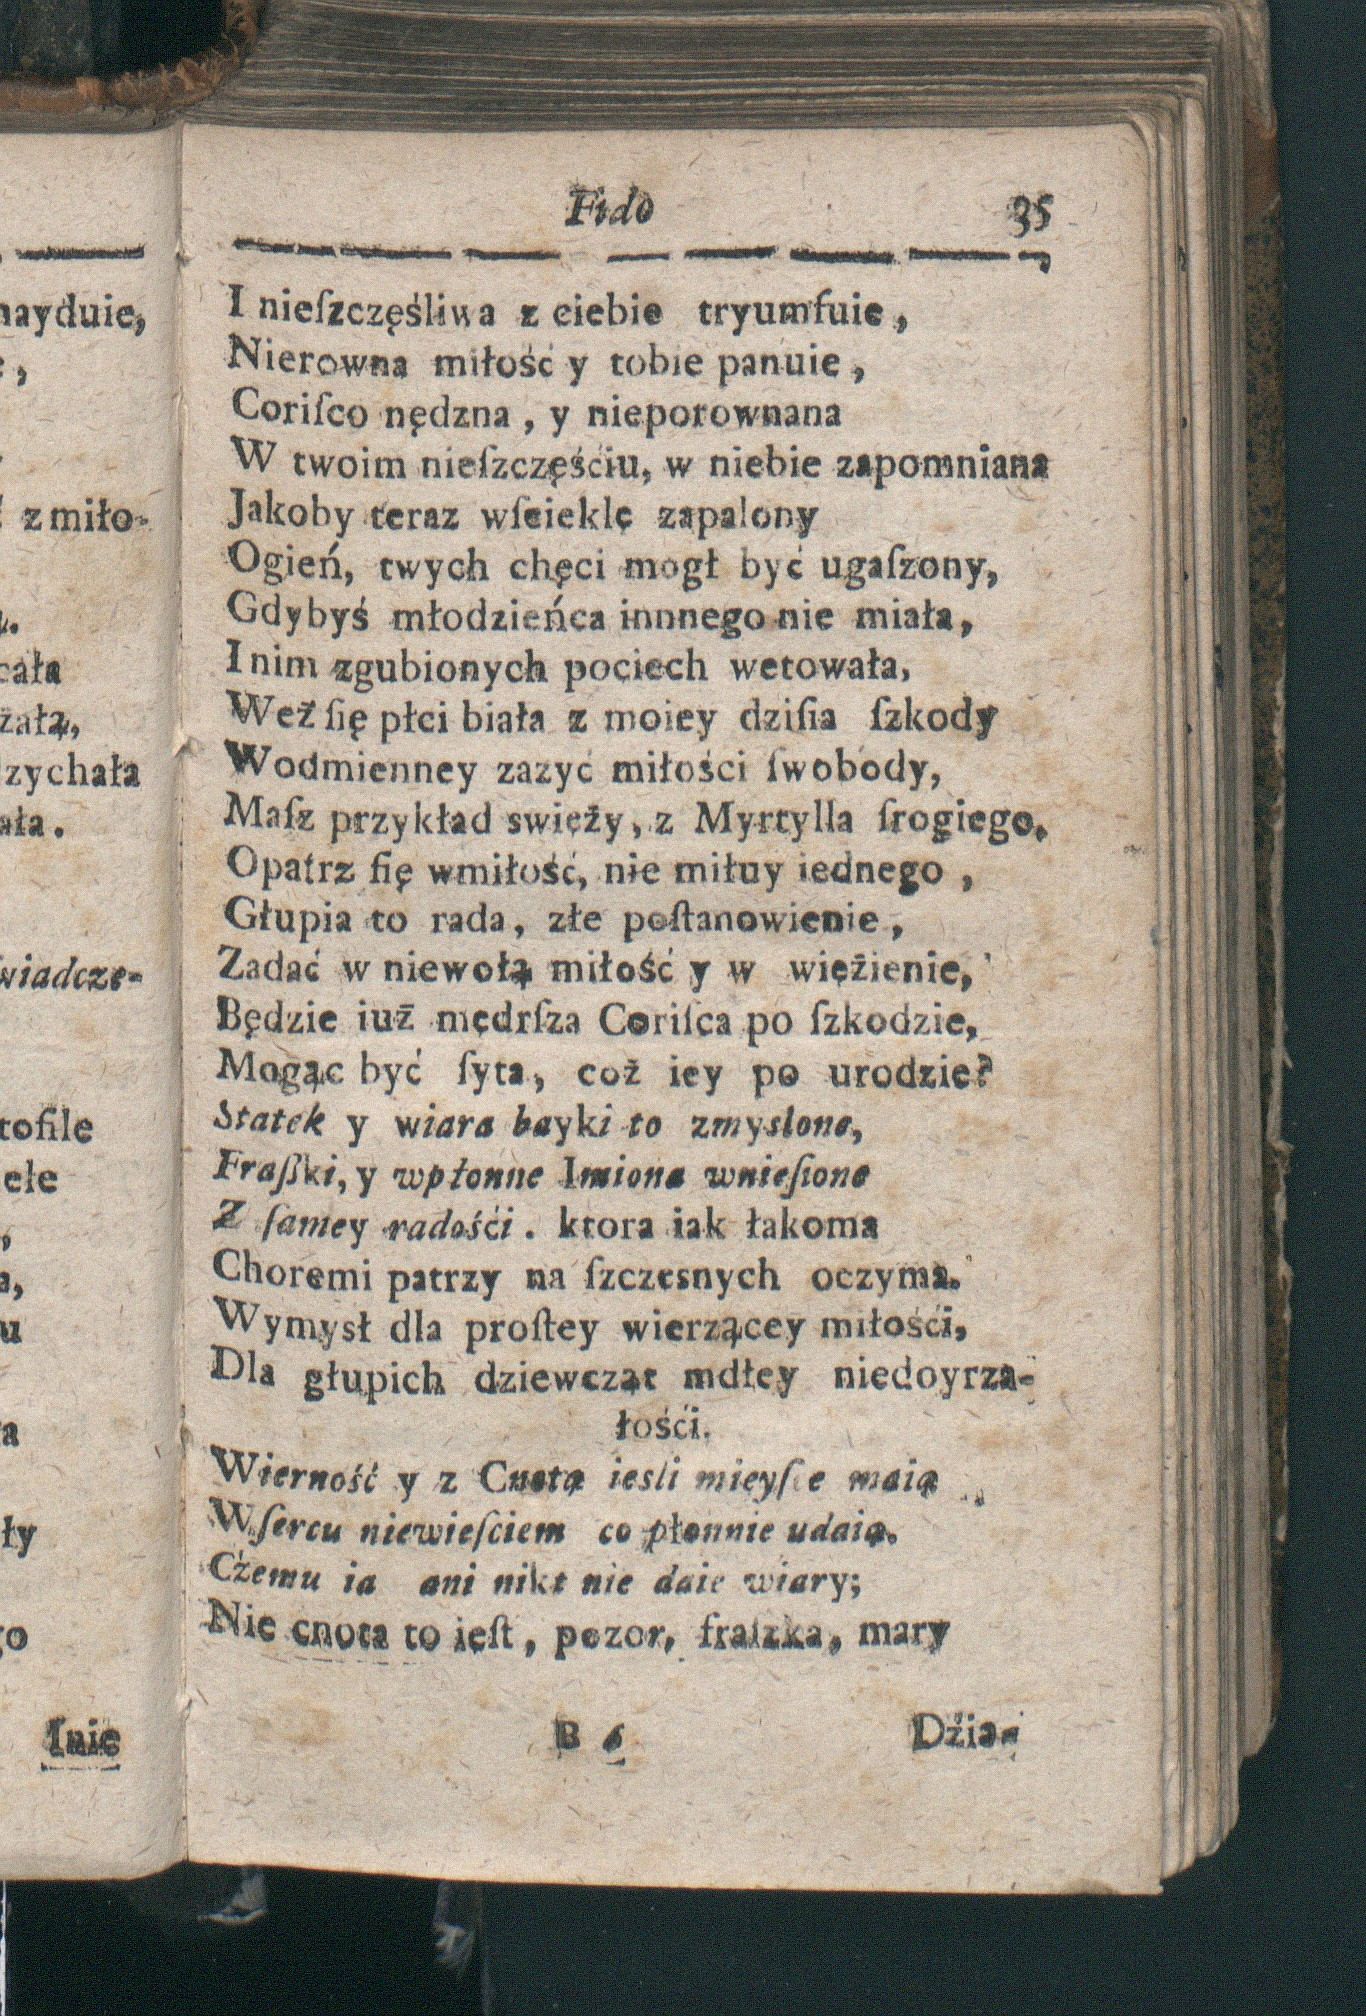 Fido 35
I nieſzczęśliwa z ciebie tryumfuie,
Nierowna miłość y tobie panuie,
Coriſco nędzna, y nieporownana
W twoim nieſzczęśćiu, w niebie zapomniana
Jakoby teraz wſcieklę zapalony
Ogień, twych chęci mogł być ugaſzony,
Gdybyś młodzieńca innnego nie miała,
I nim zgubionych pociech wetowała,
Weź ſię płci biała z moiey dziſia ſzkody
Wodmienney zazyć miłości ſwobody,
Maſz przykład swięży, z Myrtylla ſrogiego,
Opatrz ſię wmiłość, nie miłuy iednego,
Głupia to rada, złe poſtanowienie,
Zadać w niewołą miłość y w więźienie,
Będzie iuż mędrſza Coriſca po ſzkodzie,
Mogąc być ſyta, coż iey po urodzie?
Statek y wiara bayki to zmyslone,
Fraßki, y wpłonne Imiona wnieſione
Z ſamey radośći. ktora iak łakoma
Choremi patrzy na ſzczesnych oczyma.
Wymysł dla proſtey wierzącey miłośći,
Dla głupich dziewcząt mdłey niedoyrza-
łośći.
Wierność y z Cnotą iesli mieyſce maią
W ſercu niewieſciem co płonnie udaią.
Czemu ia ani nikt nie daie wiary;
Nie cnota to ieſt, pozor, fraſzka, mary
B 6 Dźia-
nayduie,
z miło-
cała
zychała
wiadcze-
tofile
Inie